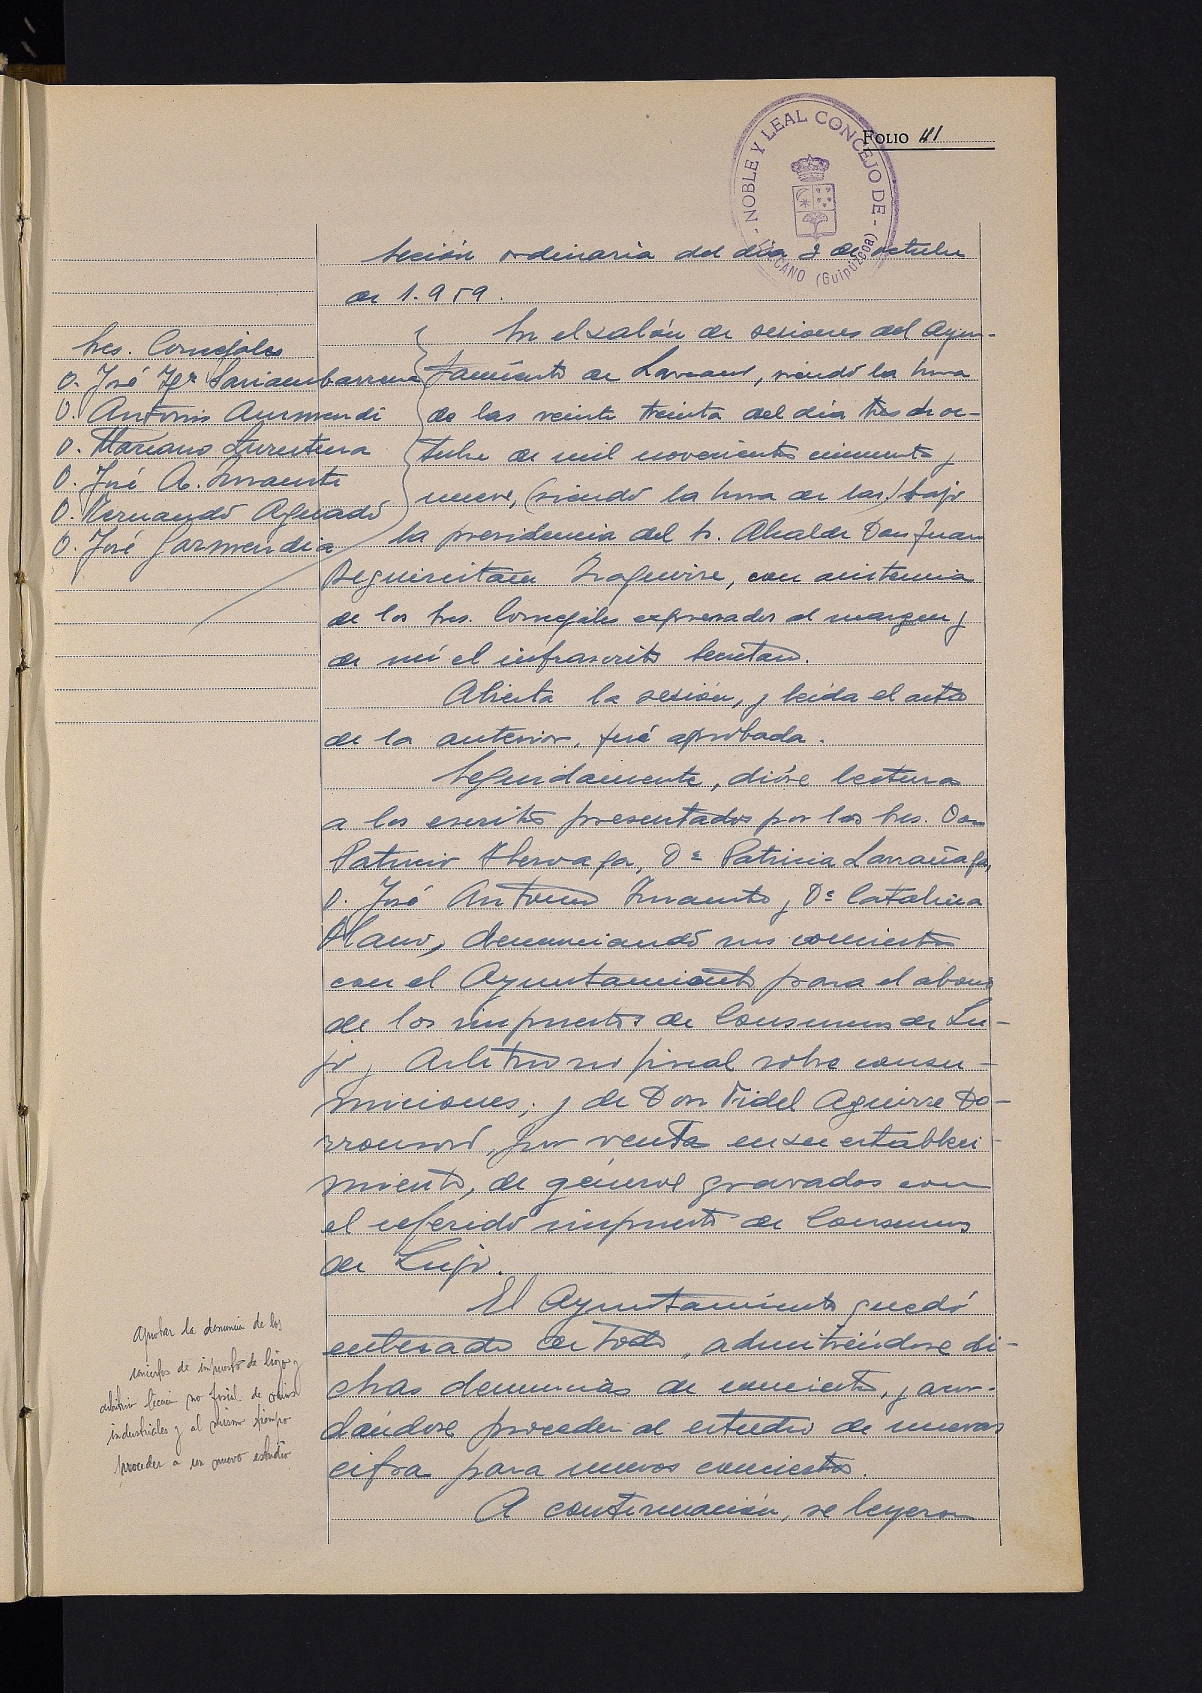 FOLIO 41
NOBLE Y LEAL CONCEJO DE
LAZCANO (Guipúzcoa)
Seción ordinaria del día 3 de octubre
de 1.959.
Sres. Concejales
D. José Jª Sariambarrena
D. Antonio Aurmendi
D. Mariano
D. José A. Insausti
D. Fernando Aguado
D. José Garmendia
En el salón de sesiones del Ayun-
tamiento de Lazcano, siendo la hora
de las veinte treinta del día tres de oc-
tubre de mil novecientos cincuenta y
nueve, (siendo la hora de las) bajo
la presidencia del Sr. Alcalde Don Juan
Iraguirre, con asistencia
de los Sres. Concejales expresados al margen y
de mí el infrascrito Secretario.
Abierta la sesión, y leída el acta
de la anterior, fué aprobada.
Seguidamente, dióse lectura
a los escritos presentados por los Sres. Don
Patricio, Dª Patricia Larrañaga,
D. José Antonio Insausti y Dª Catalina
Olano, denunciando sus conciertos
con el Ayuntamiento para el abono
de los impuestos de Consumos de Lu-
jo y Arbitrio no fiscal sobre consu-
miciones; y de Don Fidel Aguirre Do-
rronsoro, por venta en su estableci-
miento, de géneros gravados con
el referido impuesto de Consumos
de Lujo.
El Ayuntamiento quedó
enterado de todo, admitiéndose di-
chas denuncias de concierto, y acor-
dándose proceder al estudio de nuevas
cifra para nuevos conciertos.
A continuación, se leyeron
Aprobar la denuncia de los
conciertos de impuesto de lujo y
arbitrio no fiscal de varios
industriales y al mismo tiempo
proceder a un nuevo estudio